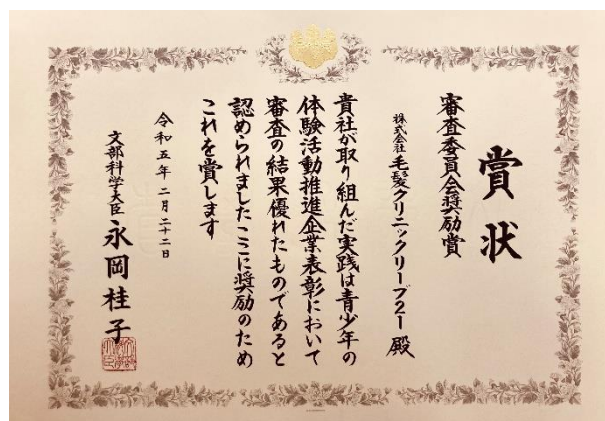 賞状
審査委員会奨励賞
株式会社毛髪クリニックリーブ21 殿
貴社が取り組んだ実践は青少年の
体験活動推進企業表彰において
審査の結果優れたものであると
認められましたここに奨励のため
これを賞します
令和五年二月二十二日
文部科学大臣 永岡桂子